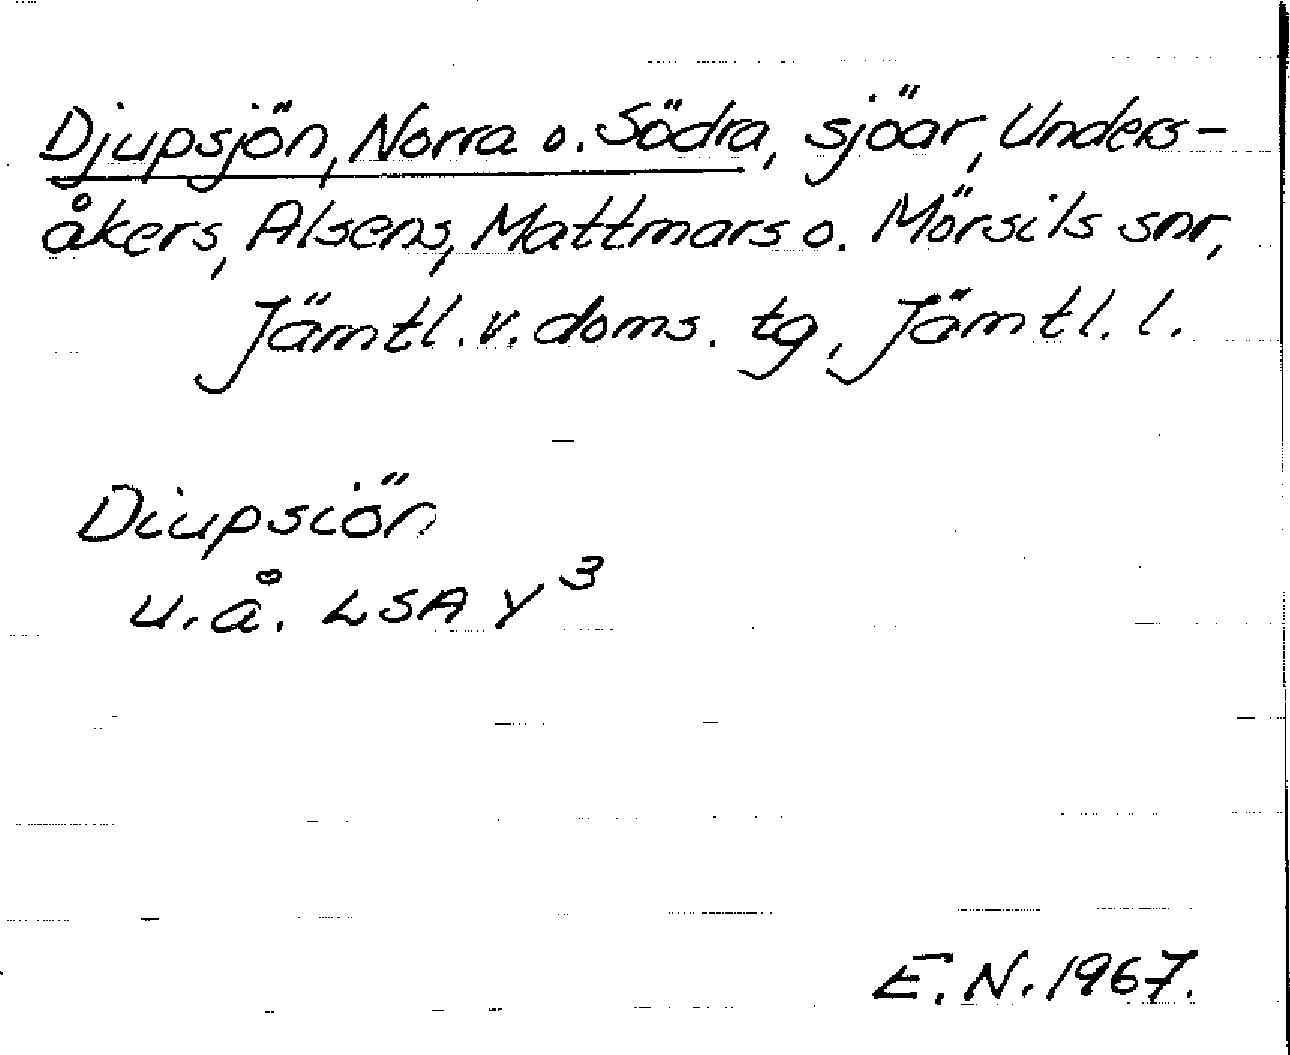 Djupsjön, Norra o. Södra, sjöar, Unders-
åkers, Alsens, Mattmars o. Mörsils snr,
Jämtl. v. doms. tg, Jämtl. l.
Diupsiön
u.å. LSA Y³
E.N. 1967.